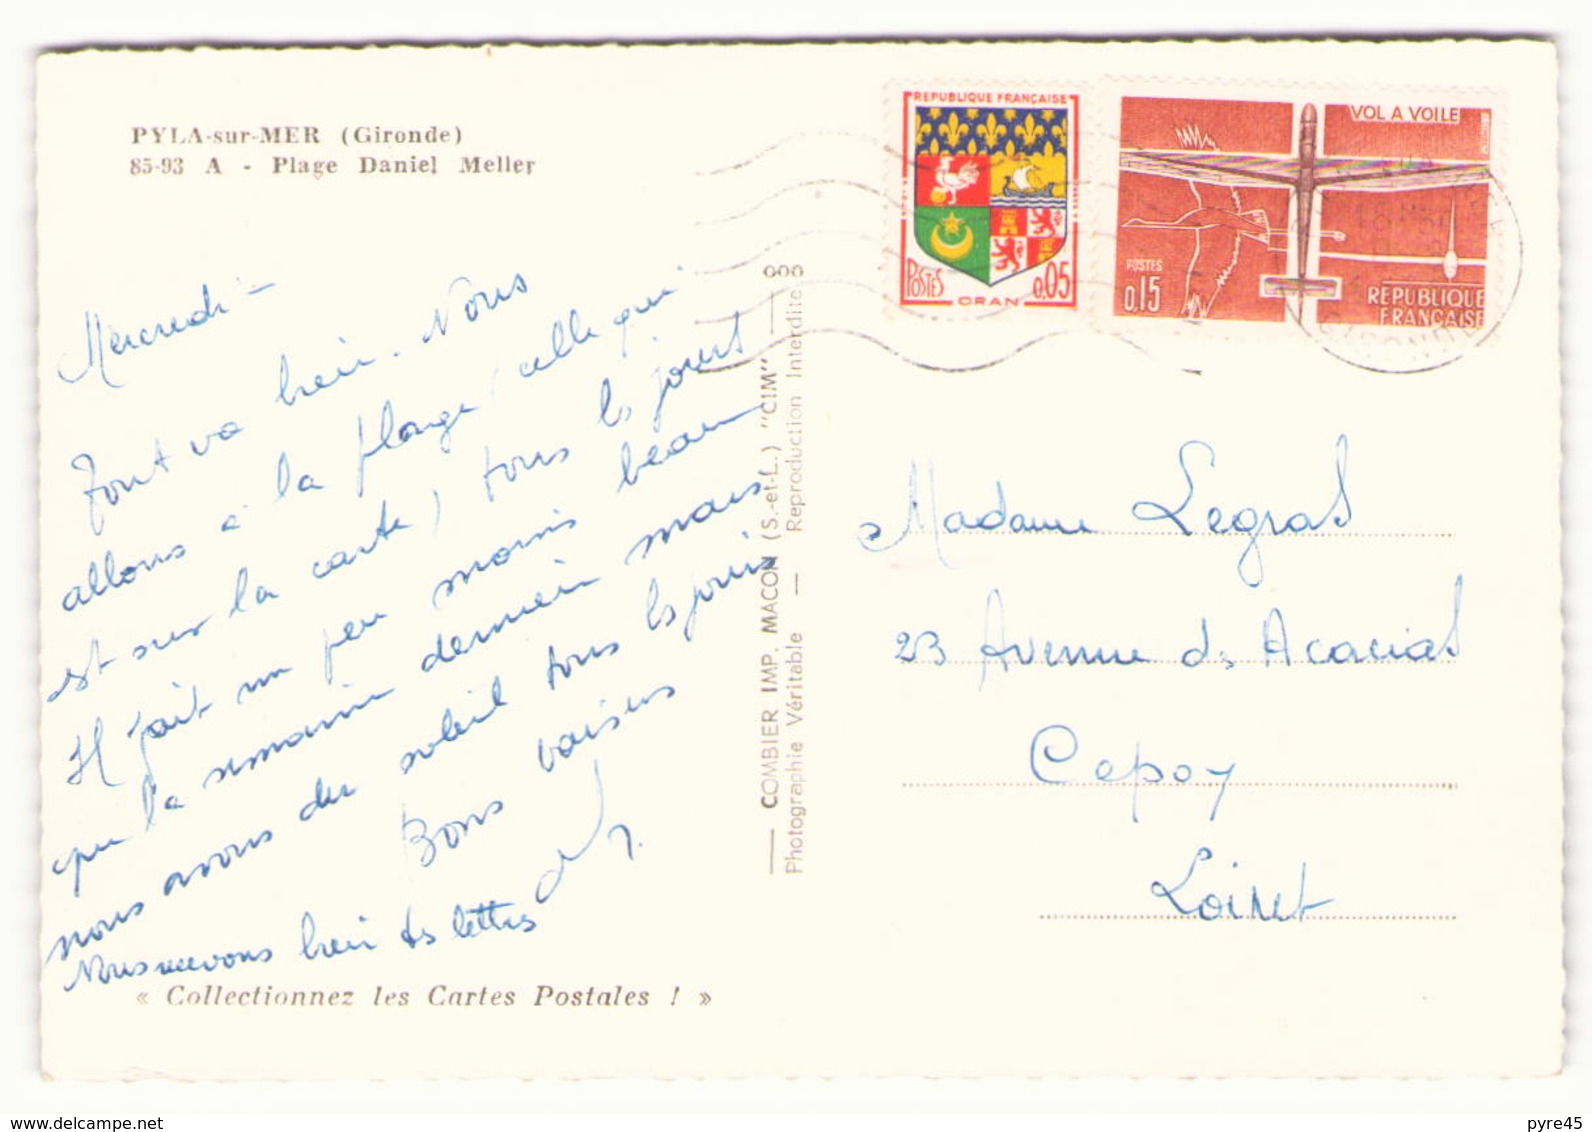 PYLA-sur-MER (Gironde)
85-93 A - Plage Daniel Meller
Mercredi -
Tout va bien. Nous
allons à la plage (celle qui
est sur la carte) tous les jours
Il fait un peu moins beau
que la semaine dernière mais
nous avons du soleil tous les jours
Bons baisers
Nous recevons bien tes lettres
« Collectionnez les Cartes Postales ! »
COMBIER IMP. MACON (S.-et-L.) "CIM"
Photographie Véritable — Reproduction Interdite
REPUBLIQUE FRANÇAISE
POSTES
0,05
ORAN
VOL A VOILE
POSTES
0,15
REPUBLIQUE
FRANÇAISE
GIRONDE
Madame Legras
23 Avenue des Acacias
Cepoy
Loiret
www.delcampe.net
pyre45